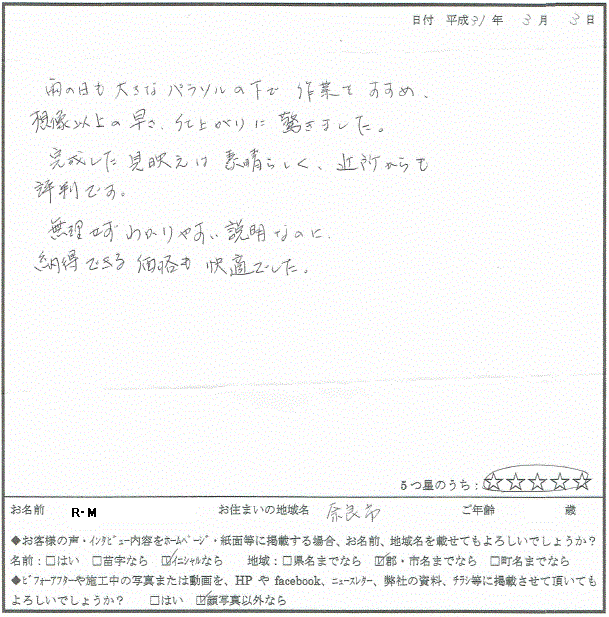 日付 平成31年 3月 3日
雨の日も大きなパラソルの下で 作業をすすめ、
想像以上の早さ、仕上がりに 驚きました。
完成した見映えは 素晴らしく、近所からも
評判です。
無理せず わかりやすい説明なのに、
納得できる 価格も 快適でした。
5つ星のうち：☆☆☆☆☆
お名前 R-M お住まいの地域名 奈良市 ご年齢 歳
◆お客様の声・インタビュー内容をホームページ・紙面等に掲載する場合、お名前、地域名を載せてもよろしいでしょうか？
名前：□はい □苗字なら ☑イニシャルなら 地域：□県名までなら ☑郡・市名までなら □町名までなら
◆ビフォーアフターや施工中の写真または動画を、HP や facebook、ニュースレター、弊社の資料、チラシ等に掲載させて頂いても
よろしいでしょうか？ □はい ☑顔写真以外なら